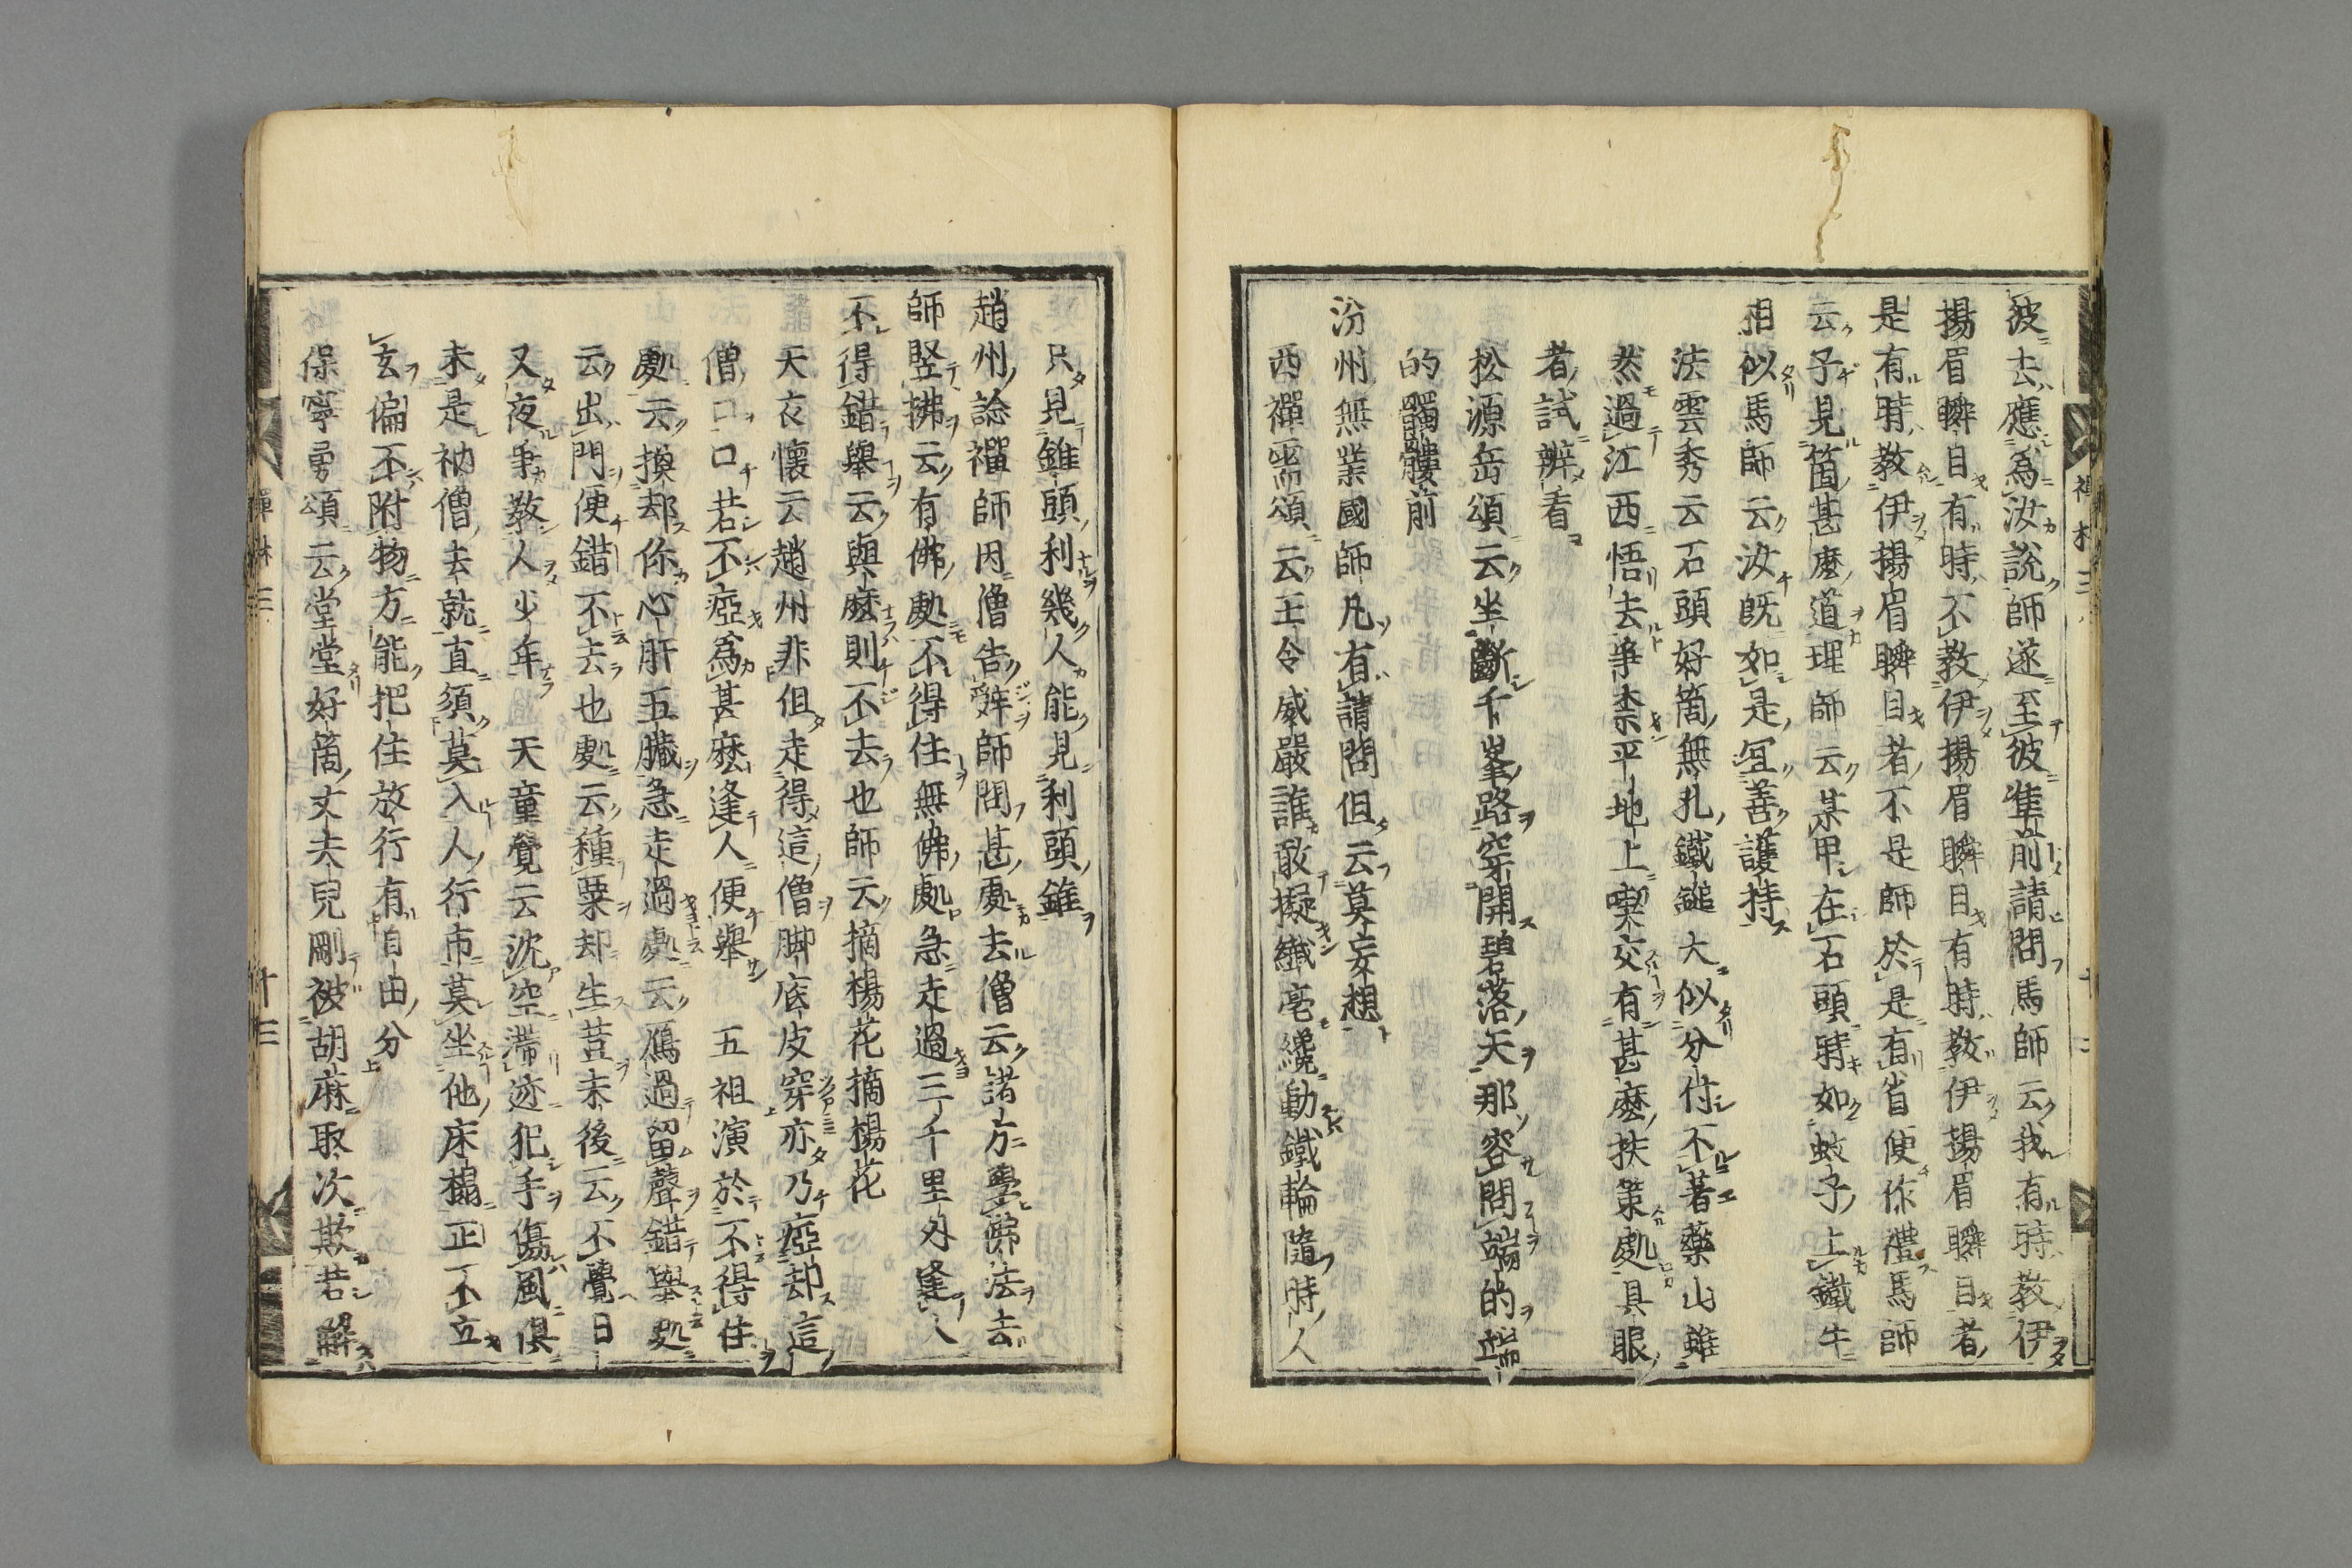 彼去應爲汝說師遂至彼准前請問馬師云我有時教伊
揚眉瞬目有時不教伊揚眉瞬目有時教伊揚眉瞬目者
是有時教伊揚眉瞬目者不是師於是有省便作禮馬師
云子見箇甚麼道理師云某甲在石頭時如蚊子上鐵牛
相似馬師云汝既如是宜善護持
法雲秀云石頭好箇無孔鐵鎚大似分付不著藥山雖
然過江西悟去爭柰平地上喫交有甚麼扶策處具眼
者試辨看
松源岳頌云坐斷千峯路穿開碧落天那容問端的端
的髑髏前
汾州無業國師凡有請問但云莫妄想
西禪需頌云王令威嚴誰敢擬纖毫纔動鐵輪隨時人
只見錐頭利幾人能見利頭錐
趙州諗禪師因僧告辭師問甚處去僧云諸方學佛法去
師竪拂云有佛處不得住無佛處急走過三千里外逢人
不得錯舉云與麼則不去也師云摘楊花摘楊花
天衣懷云趙州非但走得這僧脚底皮穿亦乃瘂却這
僧口口若不瘂爲甚麼逢人便舉 五祖演於不得住
處云換却你心肝五臟急走過處云鴈過留聲錯舉處
云出門便錯不去也處云種粟却生荳末後云不覺日
又夜爭教人少年 天童覺云沈空滯迹犯手傷風俱
未是衲僧去就直須莫入人行市莫坐他床榻正不立
玄偏不附物方能把住放行有自由分
保寧勇頌云堂堂好箇丈夫兒剛被胡麻取次欺若解
禪林三
十三